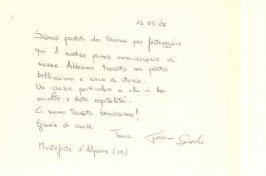 16.05.06
Siamo partiti da Verona per festeggiare
qui il nostro primo anniversario di
nozze. Abbiamo trovato un posto
bellissimo e ricco di storia.
Un grazie particolare a chi ci ha
accolto e dato ospitalità.
Ci siamo trovati benissimo!
Grazie di cuore
Monteforte d'Alpone (VR)